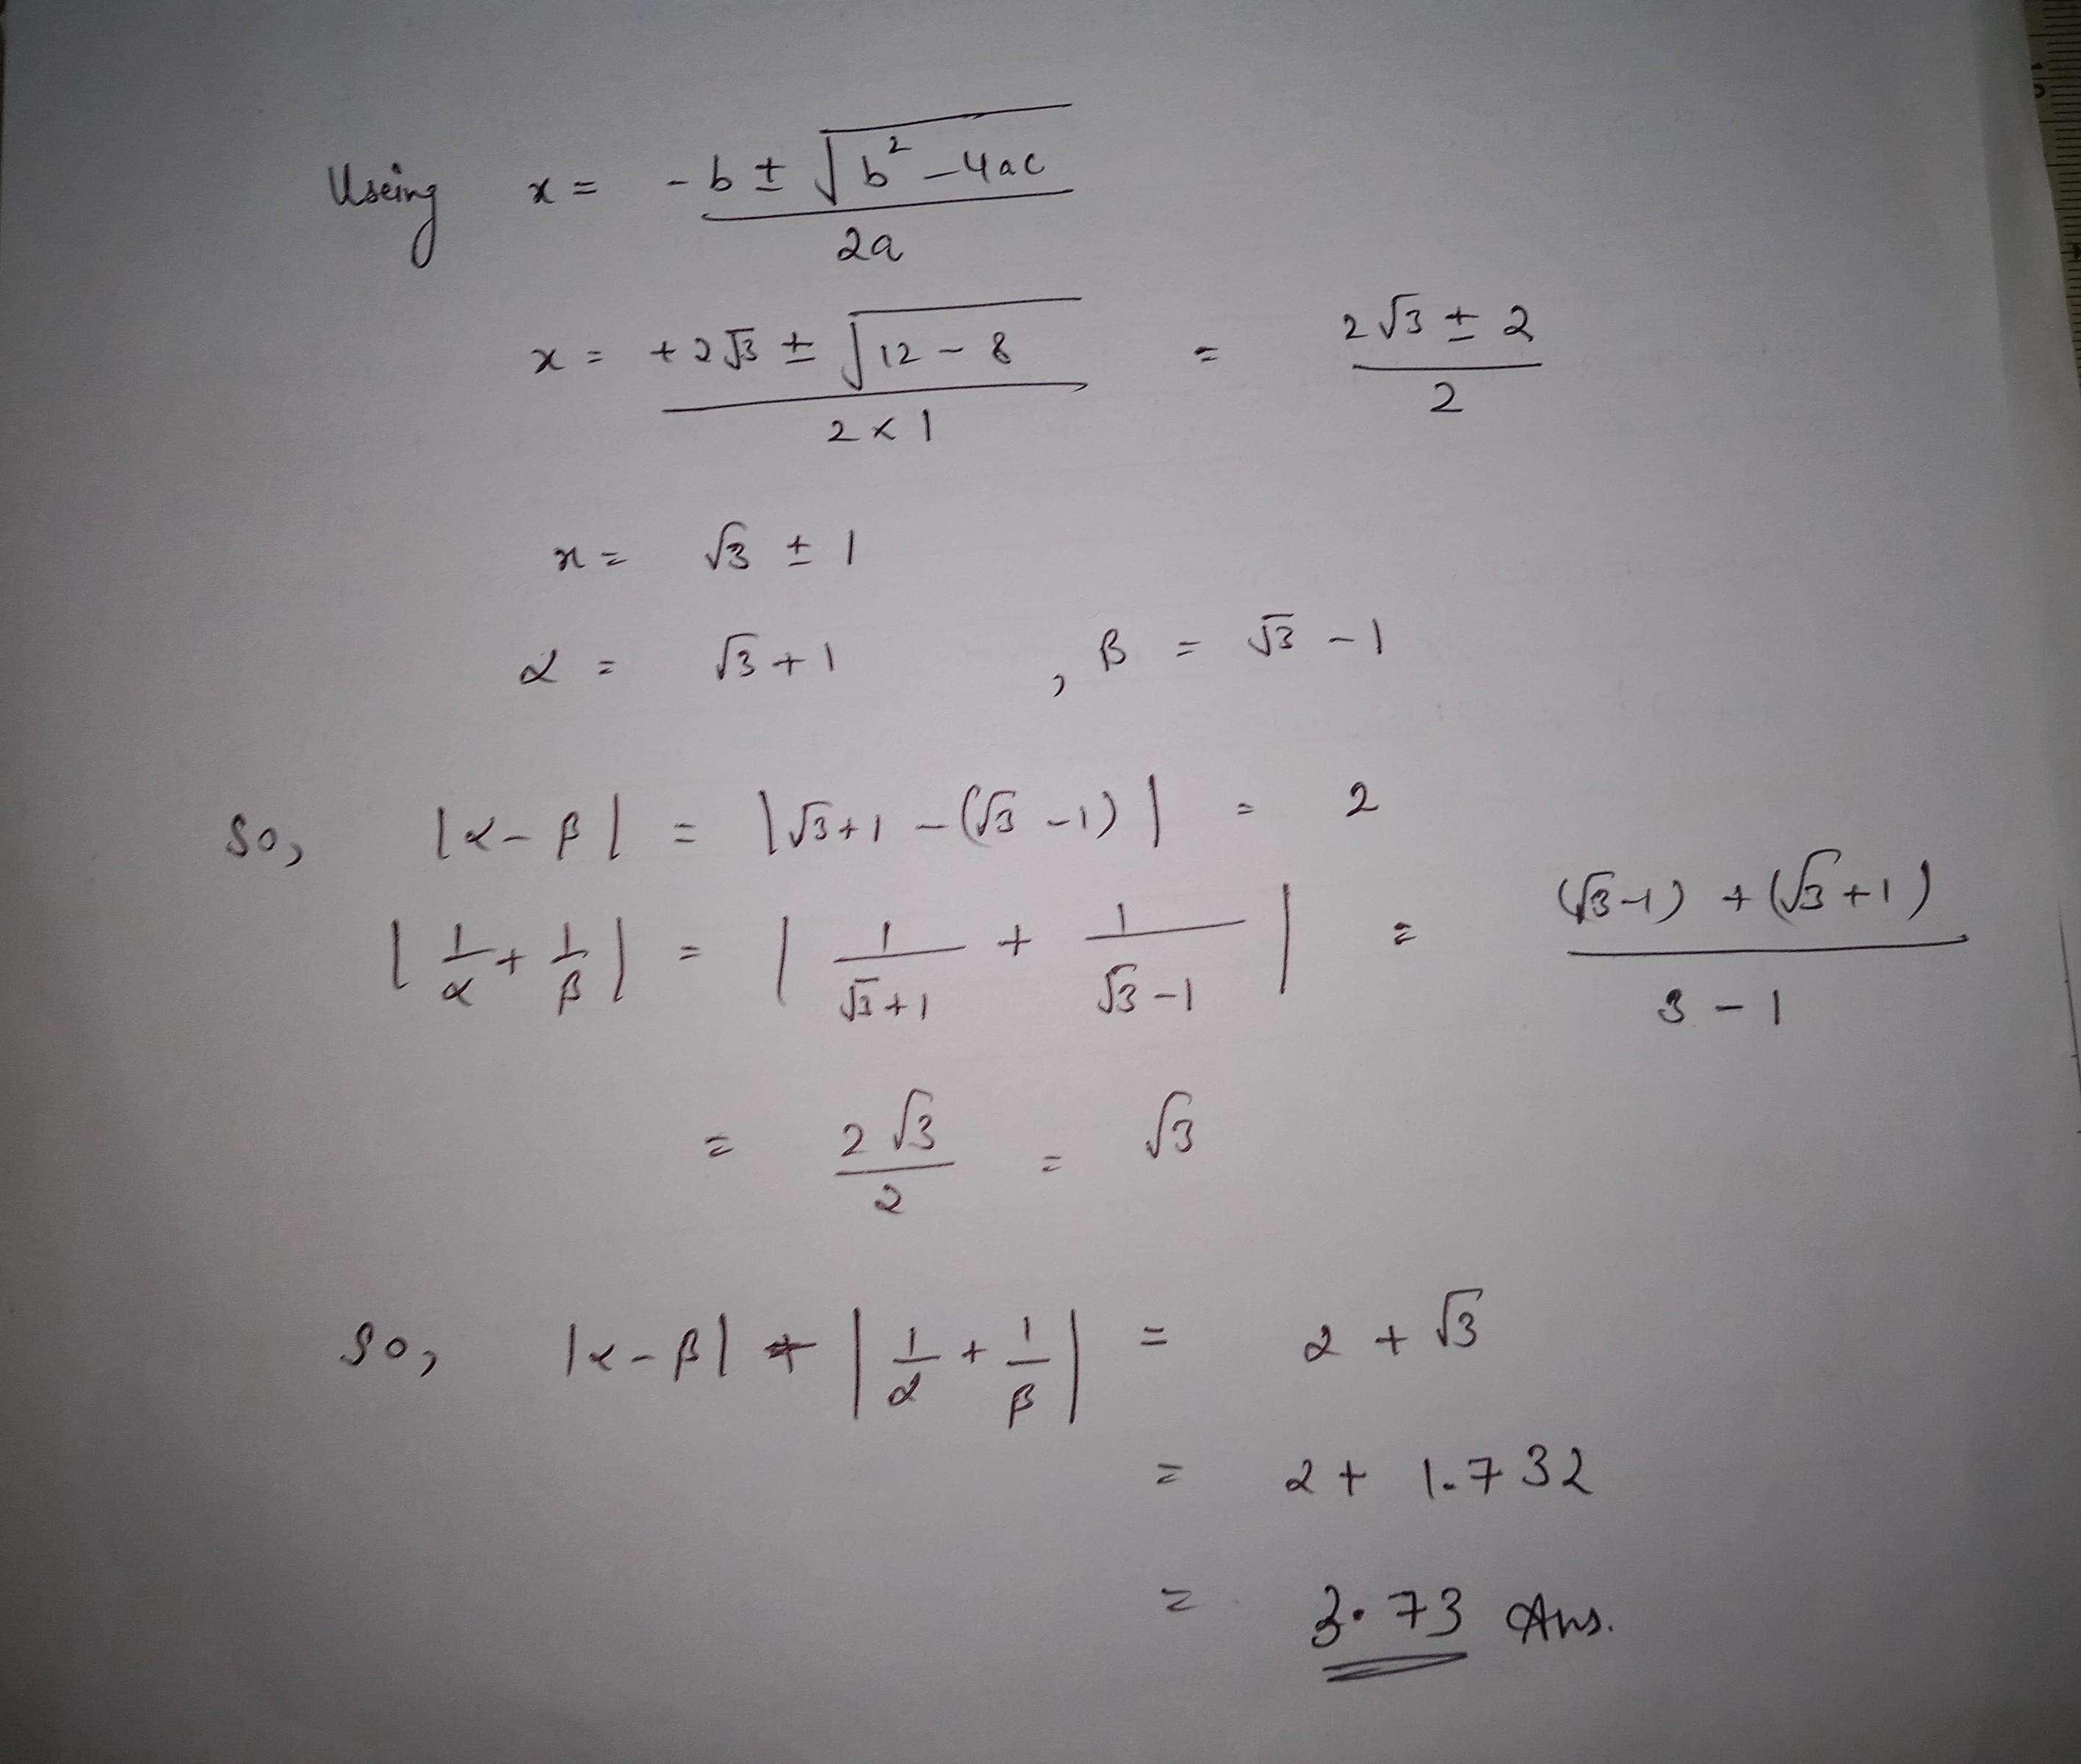 Useing x = -b ± √(b² - 4ac) / 2a
x = +2√3 ± √(12 - 8) / 2 × 1 = 2√3 ± 2 / 2
x = √3 ± 1
α = √3 + 1 , β = √3 - 1
So, |α - β| = |√3 + 1 - (√3 - 1)| = 2
|1/α + 1/β| = |1/(√3 + 1) + 1/(√3 - 1)| = (√3 - 1) + (√3 + 1) / 3 - 1
= 2√3 / 2 = √3
So, |α - β| + |1/α + 1/β| = 2 + √3
= 2 + 1.732
= 3.73 Ans.